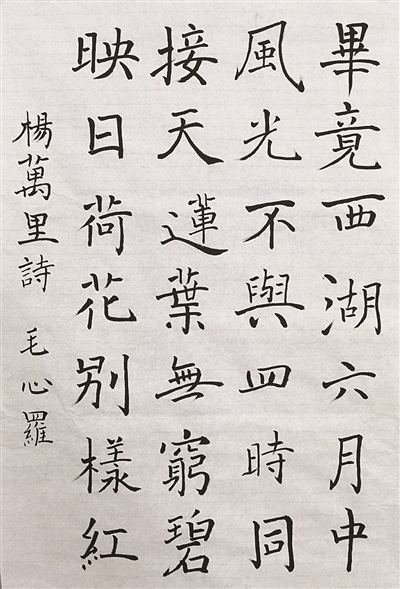 畢竟西湖六月中
風光不與四時同
接天蓮葉無窮碧
映日荷花别樣紅
楊萬里詩 毛心羅